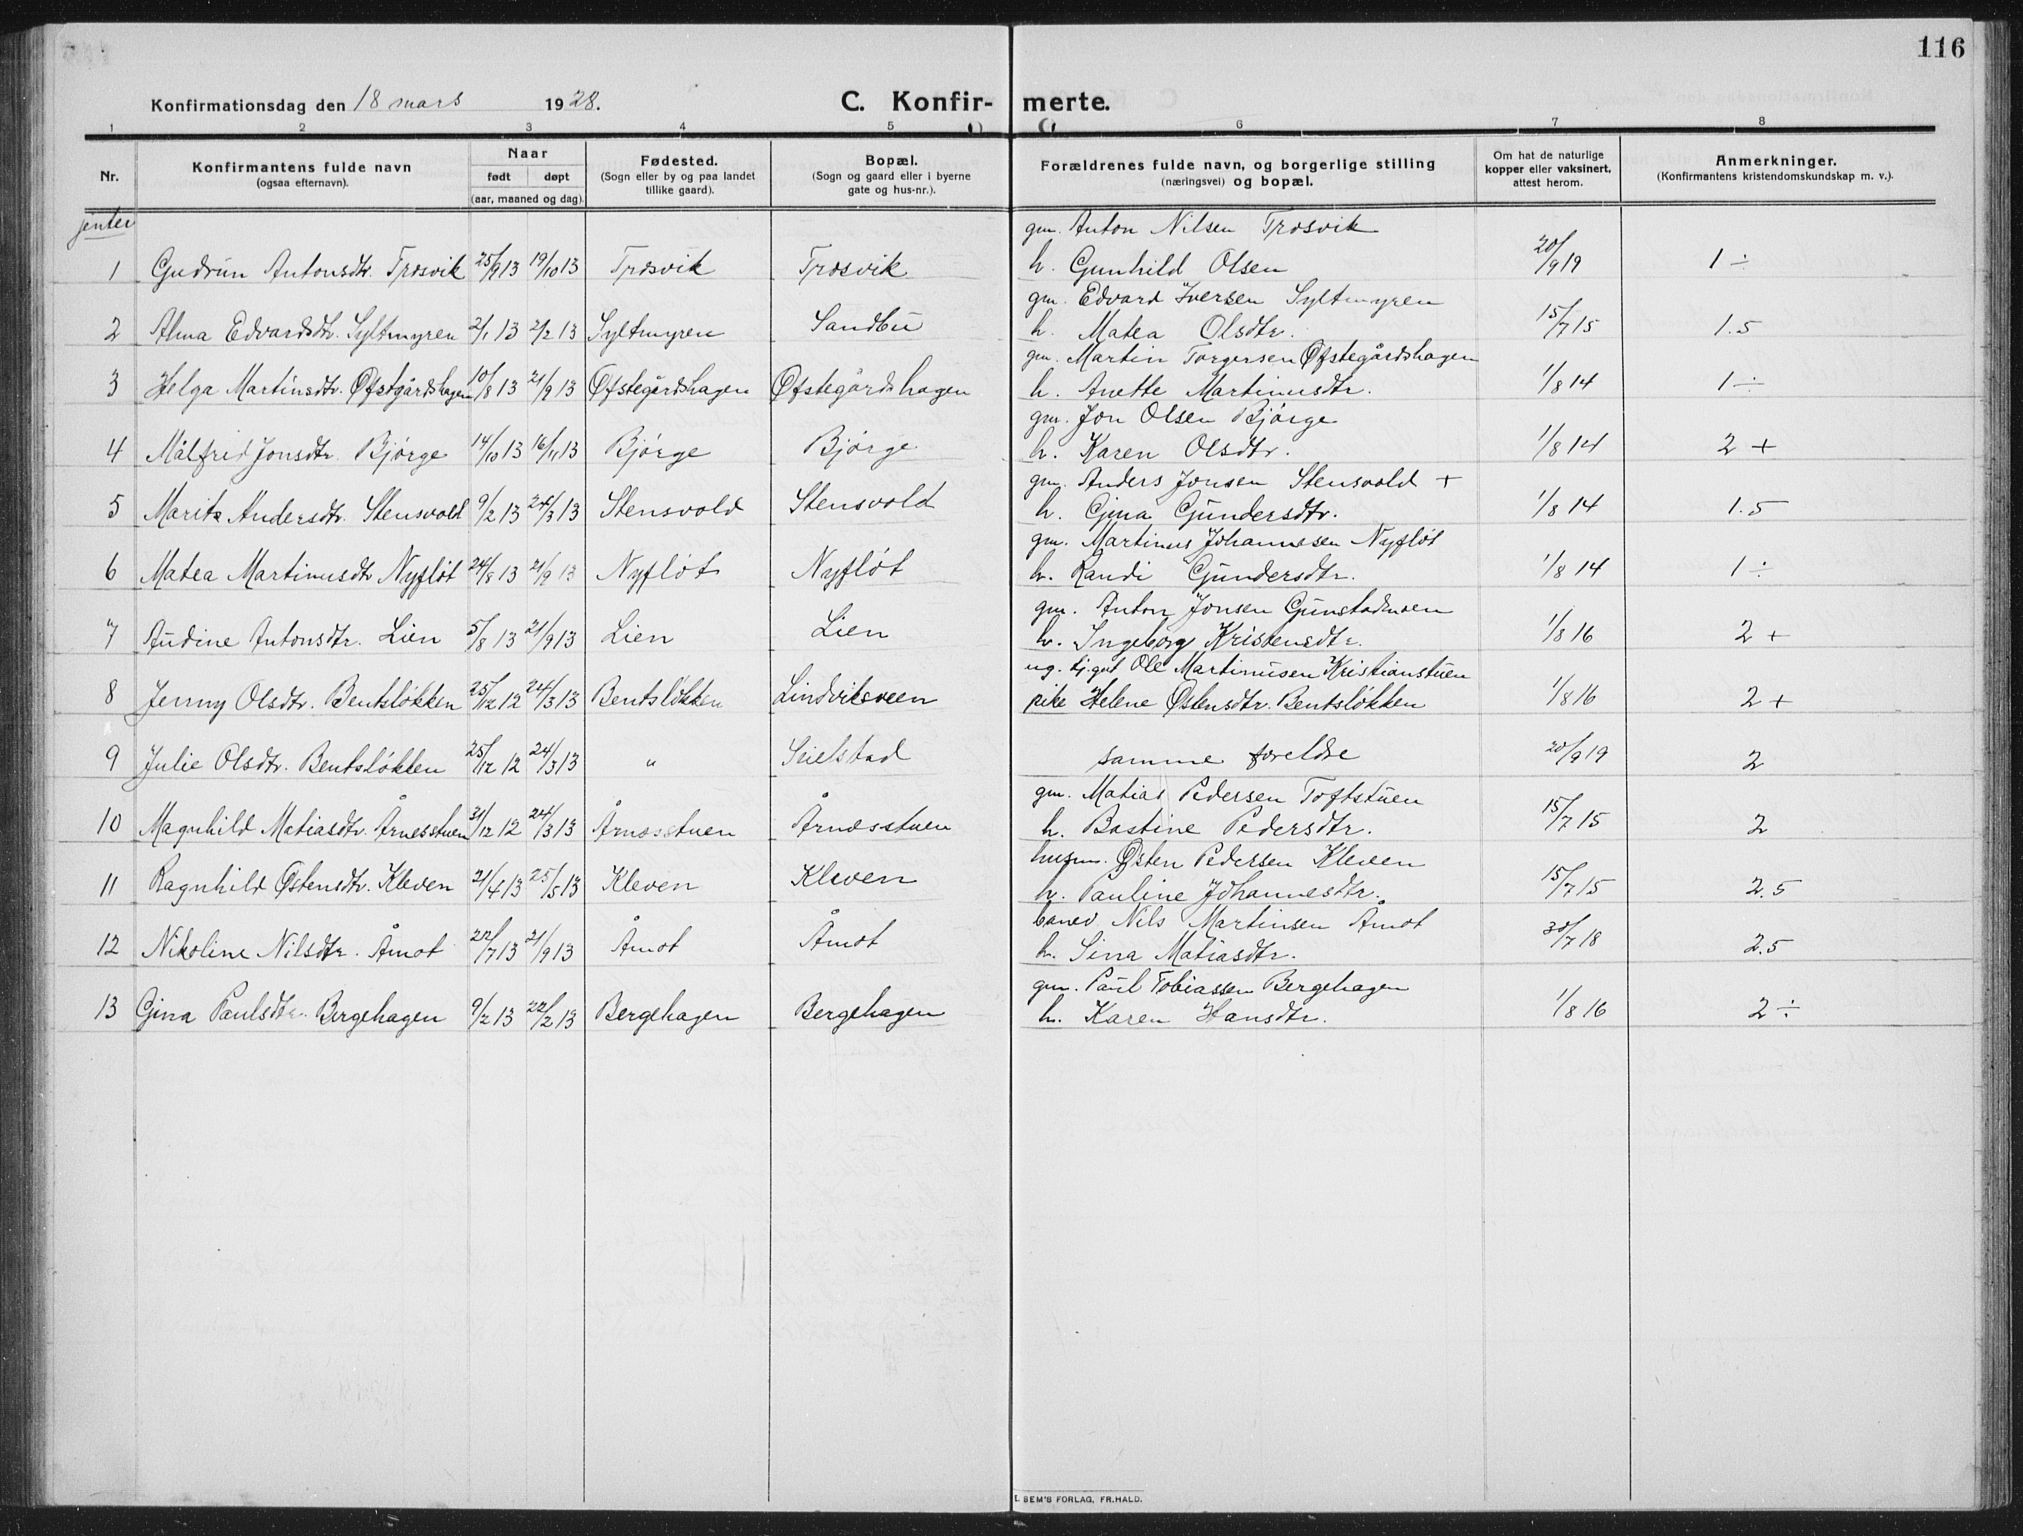 116
Konfirmationsdag den 18 mars 1928. C. Konfir- merte.
1 2 3 4 5 6 7 8
Nr. Konfirmantens fulde navn (ogsaa efternavn). Naar født døpt (aar, maaned og dag) Fødested. (Sogn eller by og paa landet tillike gaard). Bopæl. (Sogn og gaard eller i byerne gate og hus-nr.). Forældrenes fulde navn, og borgerlige stilling (næringsvei) og bopæl. Om hat de naturlige kopper eller vaksinert, attest herom. Anmerkninger. (Konfirmantens kristendomskundskap m. v.).
jenter
gm. Anton Nilsen Trosvik
1 Gudrun Antonsdtr. Trosvik 25/9 13 19/10 13 Trosvik Trosvik h. Gunhild Olsen 20/9 19 1 ÷
gm. Edvard Iversen Syltmyren
2 Alma Edvardsdtr. Syltmyren 2/1 13 2/2 13 Syltmyren Sandbu h. Matea Olsdtr. 15/7 15 1.5
gm. Martin Torgersen Øfstegårdshagen
3 Helga Martinsdtr. Øfstgårdshagen 10/8 13 21/9 13 Øfstegårdshagen Øfstegårdshagen h. Anette Martinusdtr. 1/8 14 1 ÷
gm. Jon Olsen Bjørge
4 Målfrid Jonsdtr. Bjørge 14/10 13 16/11 13 Bjørge Bjørge h. Karen Olsdtr. 1/8 14 2 +
gm. Anders Jonsen Stensvold +
5 Marit Andersdtr. Stensvold 9/2 13 24/3 13 Stensvold Stensvold h. Gina Gundersdtr. 1/8 14 1.5
gm. Martinus Johannesen Nyfløt
6 Matea Martinusdtr Nyfløt 24/8 13 21/9 13 Nyfløt Nyfløt h. Randi Gundersdtr. 1/8 14 1 ÷
gm. Anton Jonsen Gunstadmoen
7 Audine Antonsdtr. Lien 5/8 13 21/9 13 Lien Lien h. Ingeborg Kristensdtr. 1/8 16 2 +
ug. tj.gut Ole Martinusen Kristianstuen
8 Jenny Olsdtr. Bentsløkken 25/12 12 24/3 13 Bentsløkken Lindviksveen pike Helene Østensdtr. Bentsløkken 1/8 16 2 +
9 Julie Olsdtr. Bentsløkken 25/12 12 24/3 13 " Sielstad samme foreldre 20/9 19 2
gm. Matias Pedersen Toftstuen
10 Magnhild Matiasdtr. Årnesstuen 31/12 12 24/3 13 Årnesstuen Årnesstuen h. Bastine Pedersdtr. 15/7 15 2
husm. Østen Pedersen Kleven
11 Ragnhild Østensdtr. Kleven 21/4 13 25/5 13 Kleven Kleven h. Pauline Johannesdtr. 15/7 15 2.5
banev. Nils Martinsen Åmot
12 Nikoline Nilsdtr. Åmot 22/7 13 21/9 13 Åmot Åmot h. Sina Matiasdtr. 30/7 18 2.5
gm. Paul Tobiassen Bergehagen
13 Gina Paulsdtr. Bergehagen 9/2 13 22/2 13 Bergehagen Bergehagen h. Karen Hansdtr. 1/8 16 2 ÷
E. SEM'S FORLAG, FR.HALD.